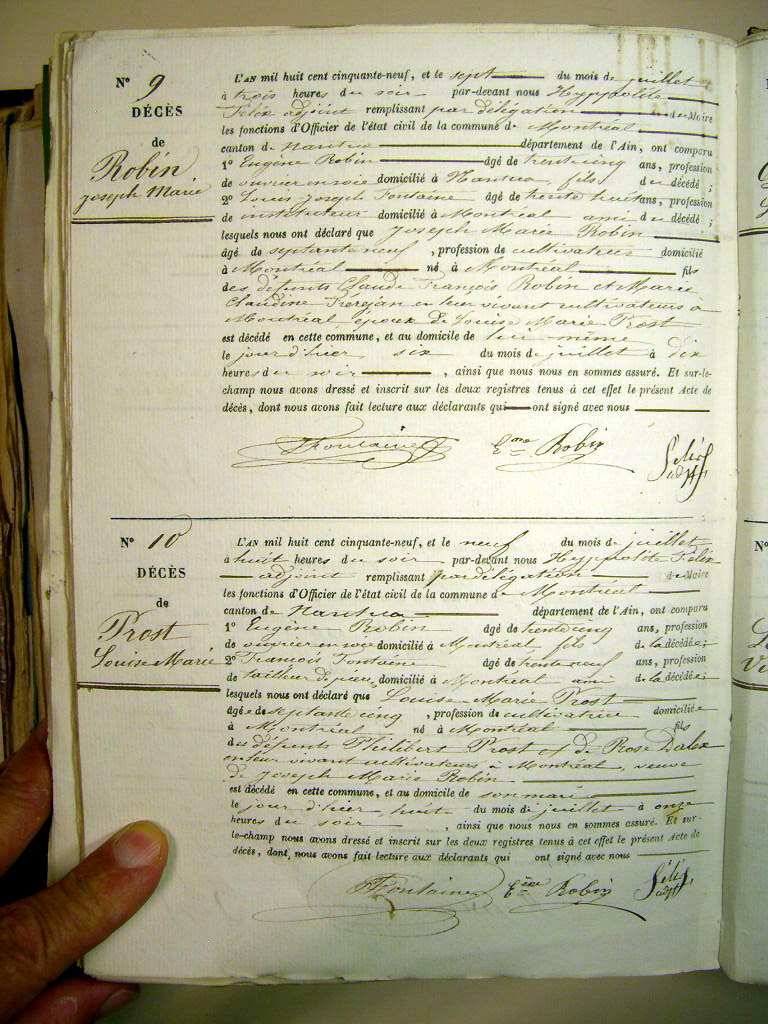 N° 9
DÉCÈS
de
Robin
Joseph Marie
L'AN mil huit cent cinquante-neuf, et le sept du mois de juillet
à trois heures du soir par-devant nous Hyppolite
Félix adjoint remplissant par délégation du Maire
les fonctions d'Officier de l'état civil de la commune de Montréal
canton de Nantua département de l'Ain, ont comparu
1° Eugène Robin âgé de trente cinq ans, profession
de ouvrier en soie domicilié à Nantua fils du décédé;
2° Louis Joseph Fontaine âgé de trente huit ans, profession
de instituteur domicilié à Montréal ami du décédé;
lesquels nous ont déclaré que Joseph Marie Robin
âgé de septante neuf, profession de cultivateur domicilié
à Montréal né à Montréal fils
des défunts Claude François Robin et Marie
Claudine en leur vivant cultivateurs a
Montréal, époux de Louise Marie Prost
est décédé en cette commune, et au domicile de lui même
le jour d'hier six du mois de juillet à dix
heures du soir, ainsi que nous nous en sommes assuré. Et sur-le-
champ nous avons dressé et inscrit sur les deux registres tenus à cet effet le présent Acte de
décès, dont nous avons fait lecture aux déclarants qui ont signé avec nous
Fontaine Eene Robin Félix adjt
N° 10
DÉCÈS
de
Prost
Louise Marie
L'AN mil huit cent cinquante-neuf, et le neuf du mois de juillet
à huit heures du soir par-devant nous Hyppolite Félix
adjoint remplissant par délégation du Maire
les fonctions d'Officier de l'état civil de la commune de Montréal
canton de Nantua département de l'Ain, ont comparu
1° Eugène Robin âgé de trente cinq ans, profession
de ouvrier en soie domicilié à Montréal fils de la décédée;
2° François Fontaine âgé de trente neuf ans, profession
de tailleur de pierre domicilié à Montréal ami de la décédée;
lesquels nous ont déclaré que Louise Marie Prost
âgée de septante cinq, profession de cultivatrice domiciliée
à Montréal né à Montréal fils
des défunts Philibert Prost et de Rose
en leur vivant cultivateurs à Montréal, veuve
de Joseph Marie Robin
est décédé en cette commune, et au domicile de son mari
le jour d'hier huit du mois de juillet à onze
heures du soir, ainsi que nous nous en sommes assuré. Et sur-
le-champ nous avons dressé et inscrit sur les deux registres tenus à cet effet le présent Acte de
décès, dont nous avons fait lecture aux déclarants qui ont signé avec nous
Fontaine Eène Robin Félix adjt